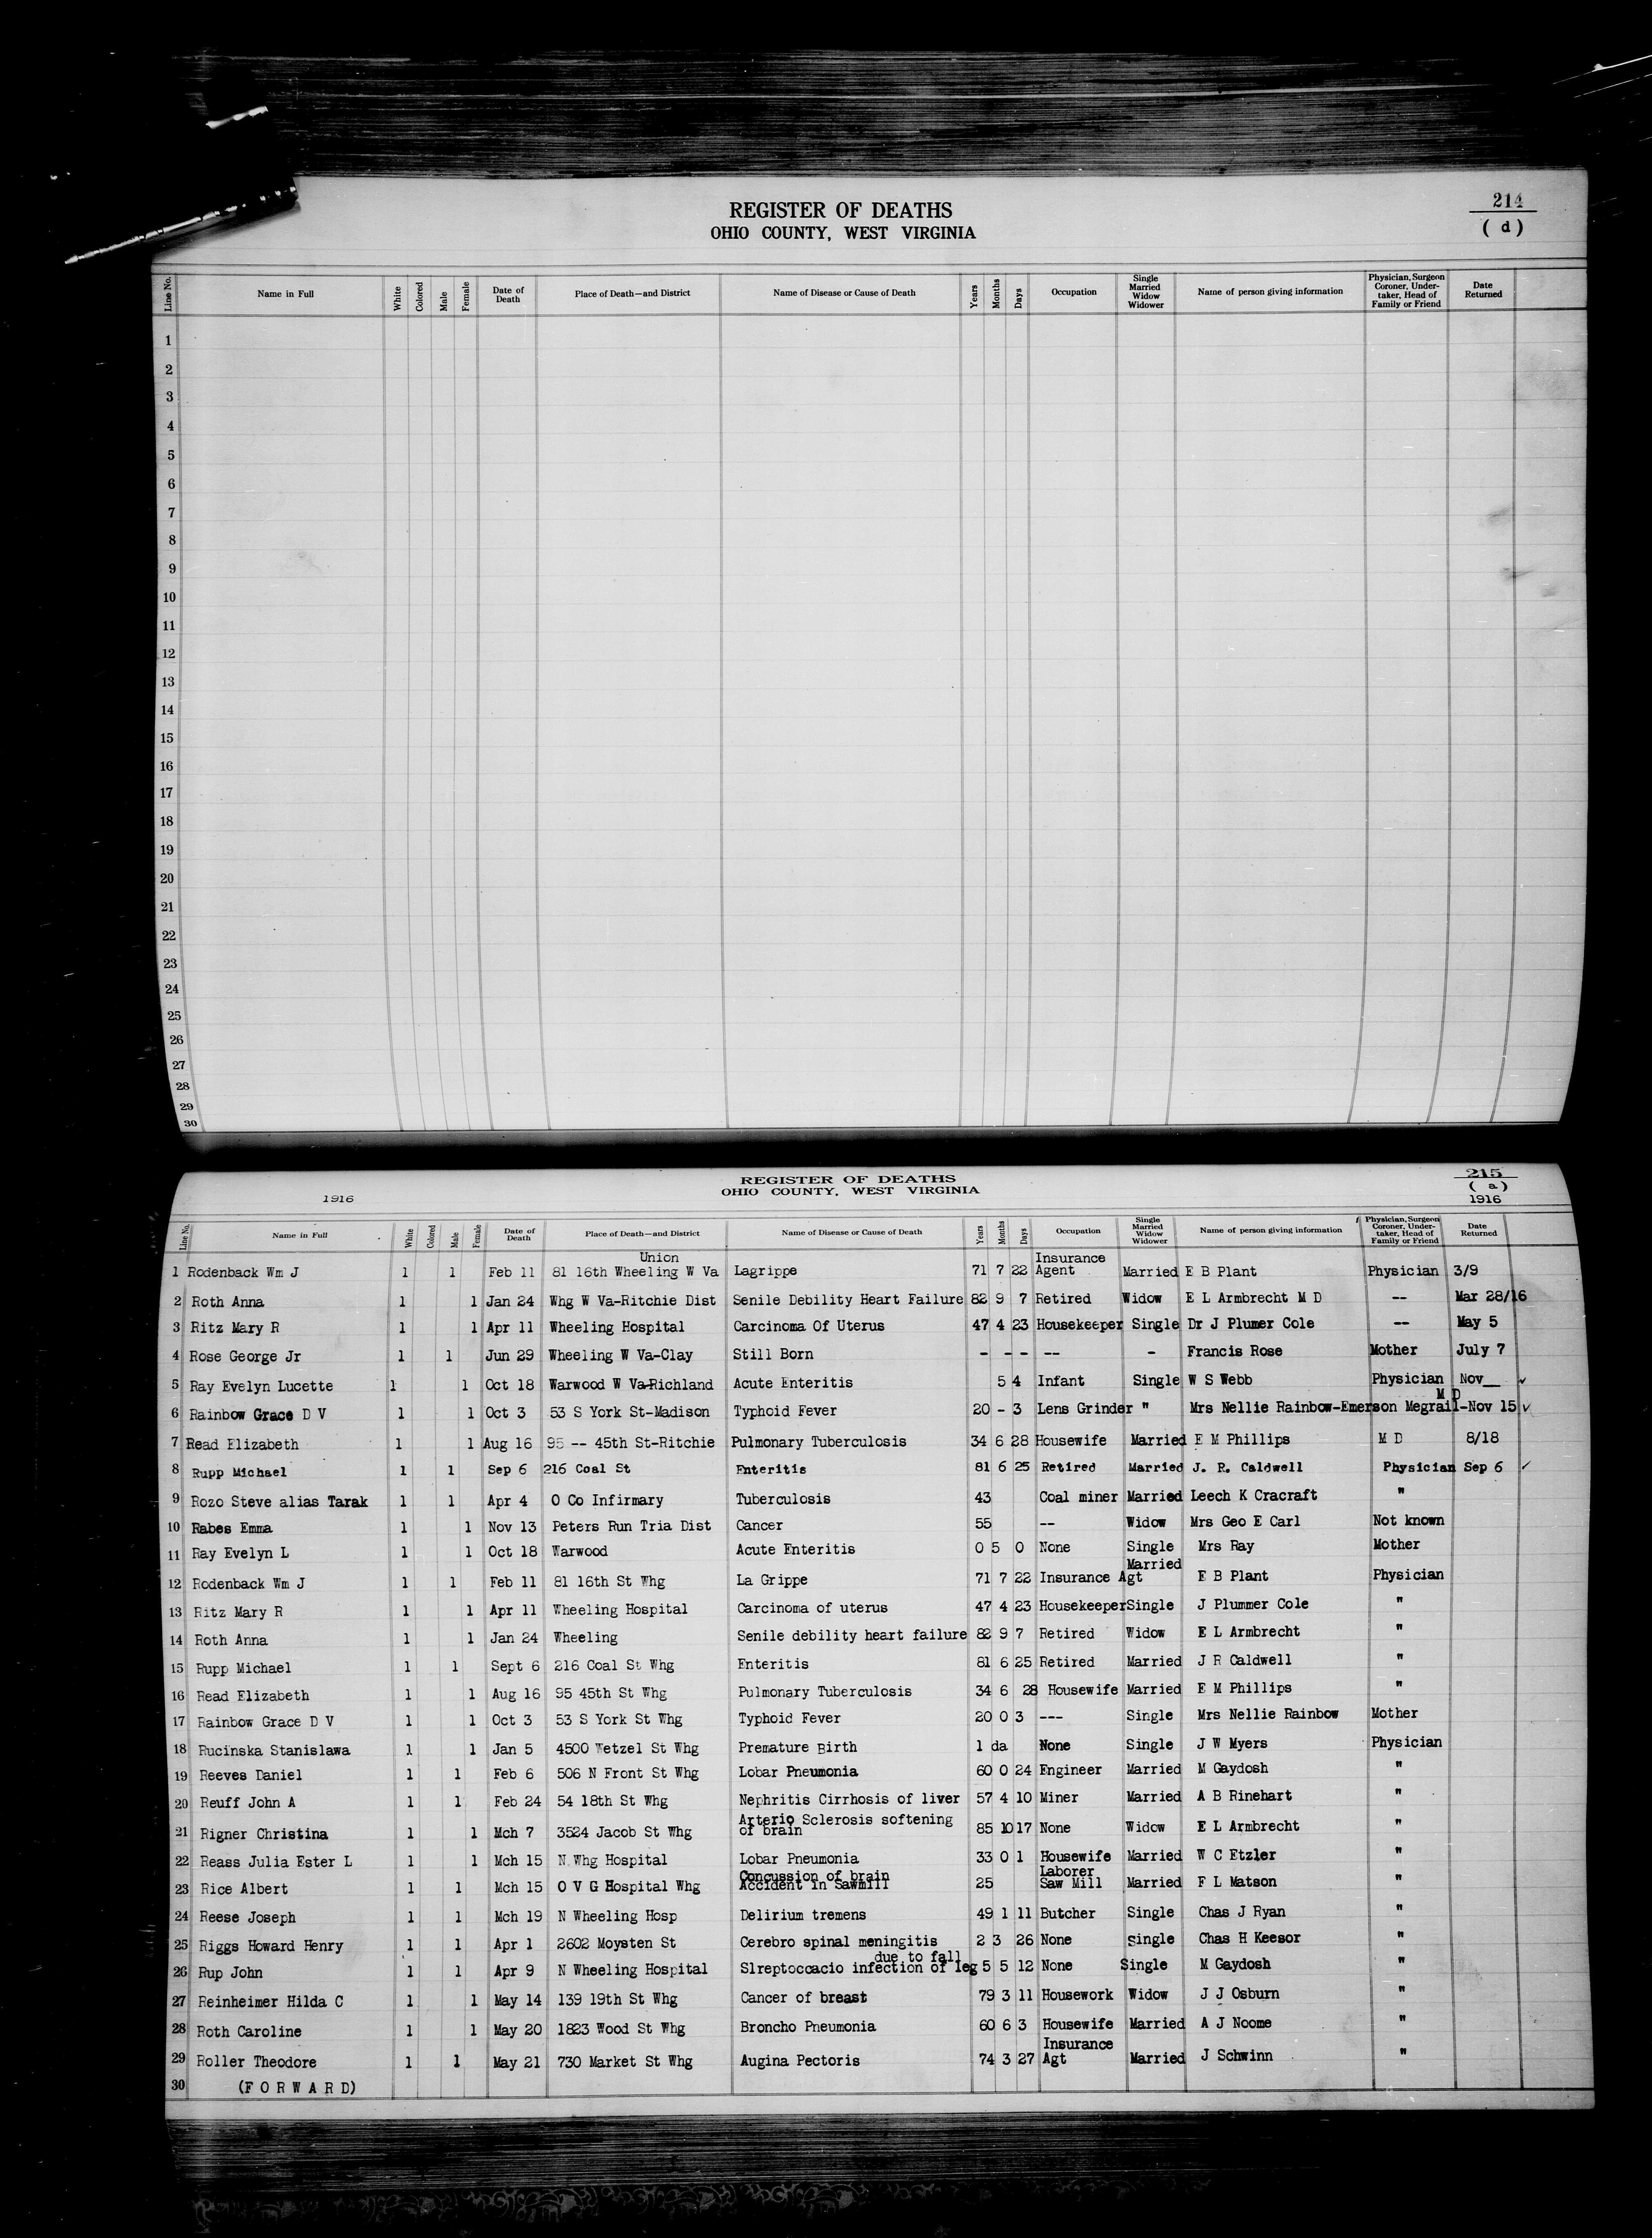 214
REGISTER OF DEATHS
OHIO COUNTY, WEST VIRGINIA
( d )
Line No. Name in Full White Colored Male Female Date of Death Place of Death—and District Name of Disease or Cause of Death Years Months Days Occupation Single Married Widow Widower Name of person giving information Physician, Surgeon Coroner, Undertaker, Head of Family or Friend Date Returned
1
2
3
4
5
6
7
8
9
10
11
12
13
14
15
16
17
18
19
20
21
22
23
24
25
26
27
28
29
30
215
REGISTER OF DEATHS
OHIO COUNTY, WEST VIRGINIA
( a )
1916
1916
Line No. Name in Full White Colored Male Female Date of Death Place of Death—and District Name of Disease or Cause of Death Years Months Days Occupation Single Married Widow Widower Name of person giving information Physician, Surgeon Coroner, Undertaker, Head of Family or Friend Date Returned
Union Insurance
1 Rodenback Wm J 1 1 Feb 11 81 16th Wheeling W Va Lagrippe 71 7 22 Agent Married E B Plant Physician 3/9
2 Roth Anna 1 1 Jan 24 Whg W Va-Ritchie Dist Senile Debility Heart Failure 82 9 7 Retired Widow E L Armbrecht M D -- Mar 28/16
3 Ritz Mary R 1 1 Apr 11 Wheeling Hospital Carcinoma Of Uterus 47 4 23 Housekeeper Single Dr J Plumer Cole -- May 5
4 Rose George Jr 1 1 Jun 29 Wheeling W Va-Clay Still Born - - - -- - Francis Rose Mother July 7
5 Ray Evelyn Lucette 1 1 Oct 18 Warwood W Va-Richland Acute Enteritis 5 4 Infant Single W S Webb Physician Nov__ ✓
M D
6 Rainbow Grace D V 1 1 Oct 3 53 S York St-Madison Typhoid Fever 20 - 3 Lens Grinder " Mrs Nellie Rainbow-Emerson Megrail-Nov 15 ✓
7 Read Elizabeth 1 1 Aug 16 95 -- 45th St-Ritchie Pulmonary Tuberculosis 34 6 28 Housewife Married E M Phillips M D 8/18
8 Rupp Michael 1 1 Sep 6 216 Coal St Enteritis 81 6 25 Retired Married J. R. Caldwell Physician Sep 6 ✓
9 Rozo Steve alias Tarak 1 1 Apr 4 O Co Infirmary Tuberculosis 43 Coal miner Married Leech K Cracraft "
10 Rabes Emma 1 1 Nov 13 Peters Run Tria Dist Cancer 55 -- Widow Mrs Geo E Carl Not known
11 Ray Evelyn L 1 1 Oct 18 Warwood Acute Enteritis 0 5 0 None Single Mrs Ray Mother
Married
12 Rodenback Wm J 1 1 Feb 11 81 16th St Whg La Grippe 71 7 22 Insurance Agt E B Plant Physician
13 Ritz Mary R 1 1 Apr 11 Wheeling Hospital Carcinoma of uterus 47 4 23 Housekeeper Single J Plummer Cole "
14 Roth Anna 1 1 Jan 24 Wheeling Senile debility heart failure 82 9 7 Retired Widow E L Armbrecht "
15 Rupp Michael 1 1 Sept 6 216 Coal St Whg Enteritis 81 6 25 Retired Married J R Caldwell "
16 Read Elizabeth 1 1 Aug 16 95 45th St Whg Pulmonary Tuberculosis 34 6 28 Housewife Married E M Phillips "
17 Rainbow Grace D V 1 1 Oct 3 53 S York St Whg Typhoid Fever 20 0 3 --- Single Mrs Nellie Rainbow Mother
18 Rucinska Stanislawa 1 1 Jan 5 4500 Wetzel St Whg Premature Birth 1 da None Single J W Myers Physician
19 Reeves Daniel 1 1 Feb 6 506 N Front St Whg Lobar Pneumonia 60 0 24 Engineer Married M Gaydosh "
20 Reuff John A 1 1 Feb 24 54 18th St Whg Nephritis Cirrhosis of liver 57 4 10 Miner Married A B Rinehart "
Arterio Sclerosis softening
21 Rigner Christina 1 1 Mch 7 3524 Jacob St Whg of brain 85 10 17 None Widow E L Armbrecht "
22 Reass Julia Ester L 1 1 Mch 15 N Whg Hospital Lobar Pneumonia 33 0 1 Housewife Married W C Etzler "
Concussion of brain Laborer
23 Rice Albert 1 1 Mch 15 O V G Hospital Whg Accident in Sawmill 25 Saw Mill Married F L Matson "
24 Reese Joseph 1 1 Mch 19 N Wheeling Hosp Delirium tremens 49 1 11 Butcher Single Chas J Ryan "
25 Riggs Howard Henry 1 1 Apr 1 2602 Moysten St Cerebro spinal meningitis 2 3 26 None Single Chas H Keesor "
due to fall
26 Rup John 1 1 Apr 9 N Wheeling Hospital Slreptoccacio infection of leg 5 5 12 None Single M Gaydosh "
27 Reinheimer Hilda C 1 1 May 14 139 19th St Whg Cancer of breast 79 3 11 Housework Widow J J Osburn "
28 Roth Caroline 1 1 May 20 1823 Wood St Whg Broncho Pneumonia 60 6 3 Housewife Married A J Noome "
Insurance
29 Roller Theodore 1 1 May 21 730 Market St Whg Augina Pectoris 74 3 27 Agt Married J Schwinn "
30 (F O R W A R D)